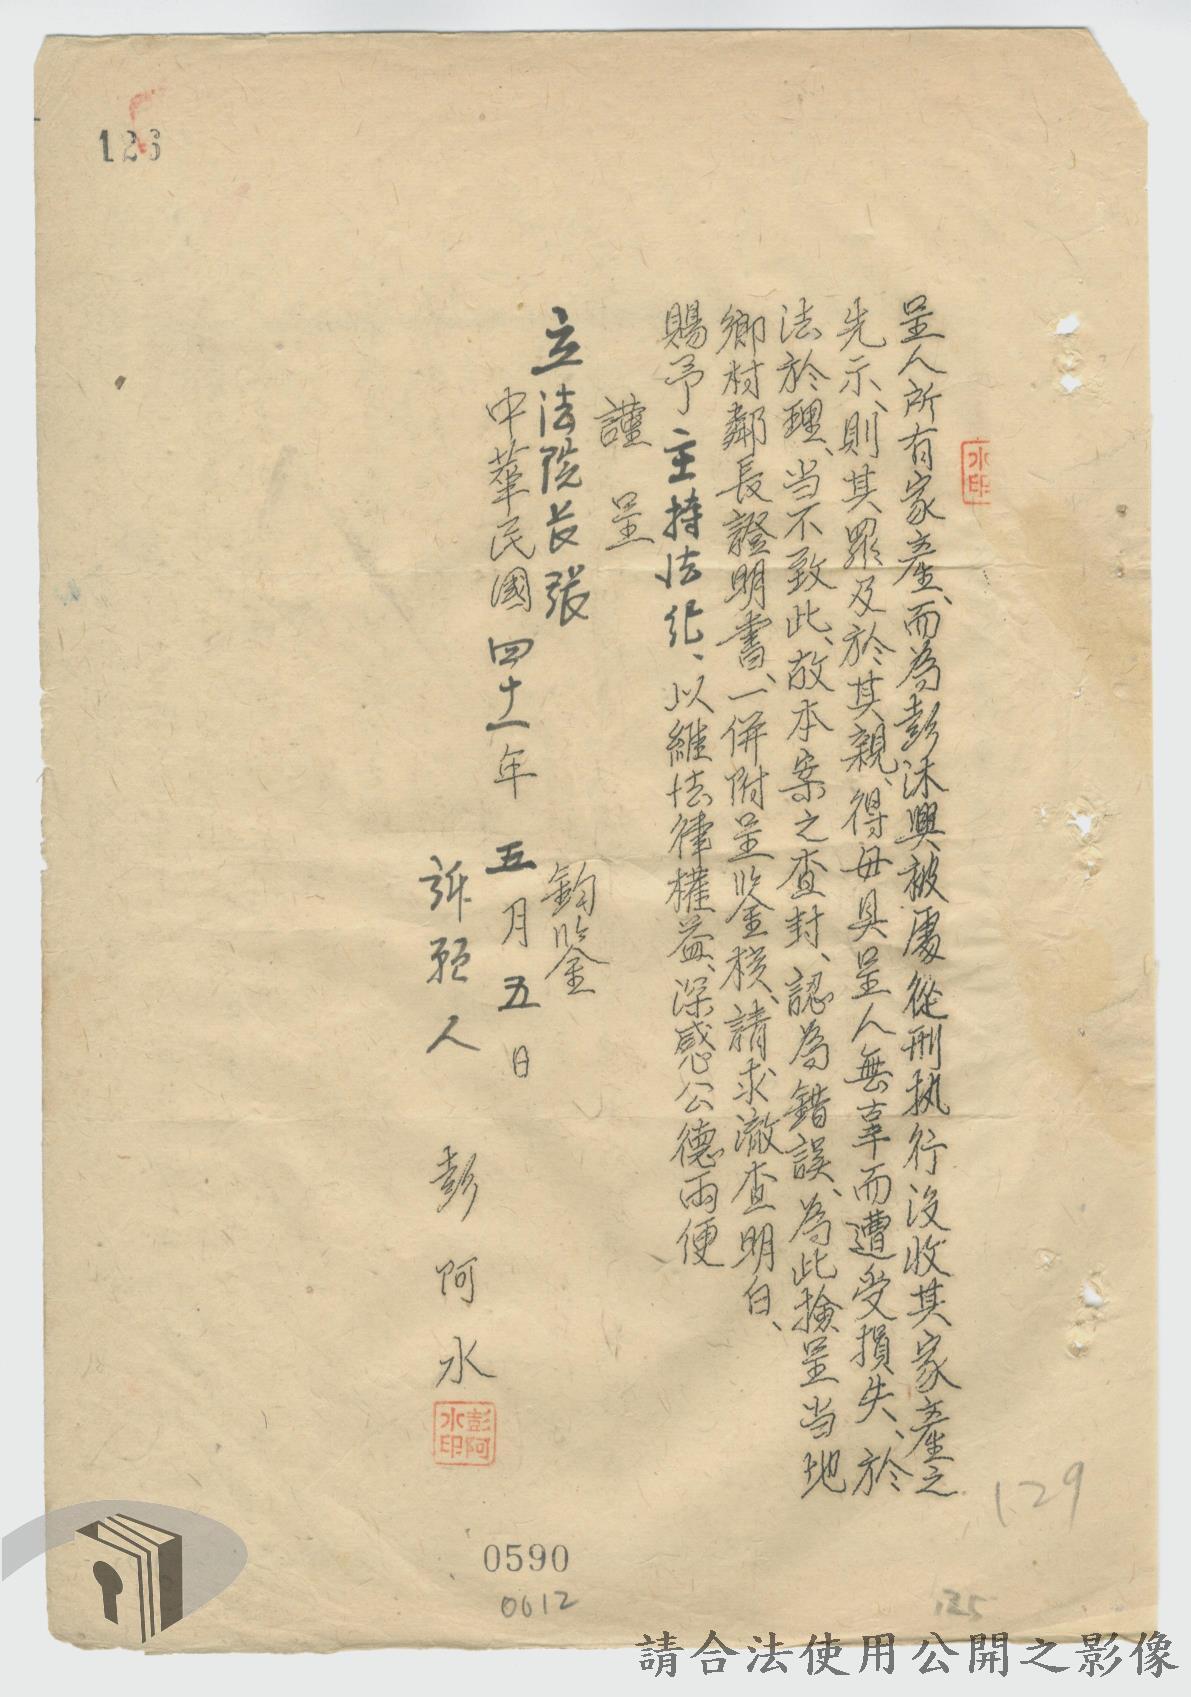 呈人所有家產、而為彭沐興被處從刑执行沒收其家產之
先示、則其罪及於其親、得毋具呈人無辜而遭受損失、於
法於理、当不致此、故本案之查封、認為錯誤、為此撿呈当地
鄉村鄰長證明書、一併附呈鉴核、請求澈查明白、
賜予主持法紀、以維法律權益、深感公德兩便
謹呈
立法院长張 鈞鉴
中華民國四十一年五月五日
訴願人 彭阿水
彭阿水印
水印
126
129
125
0590
0612
請合法使用公開之影像